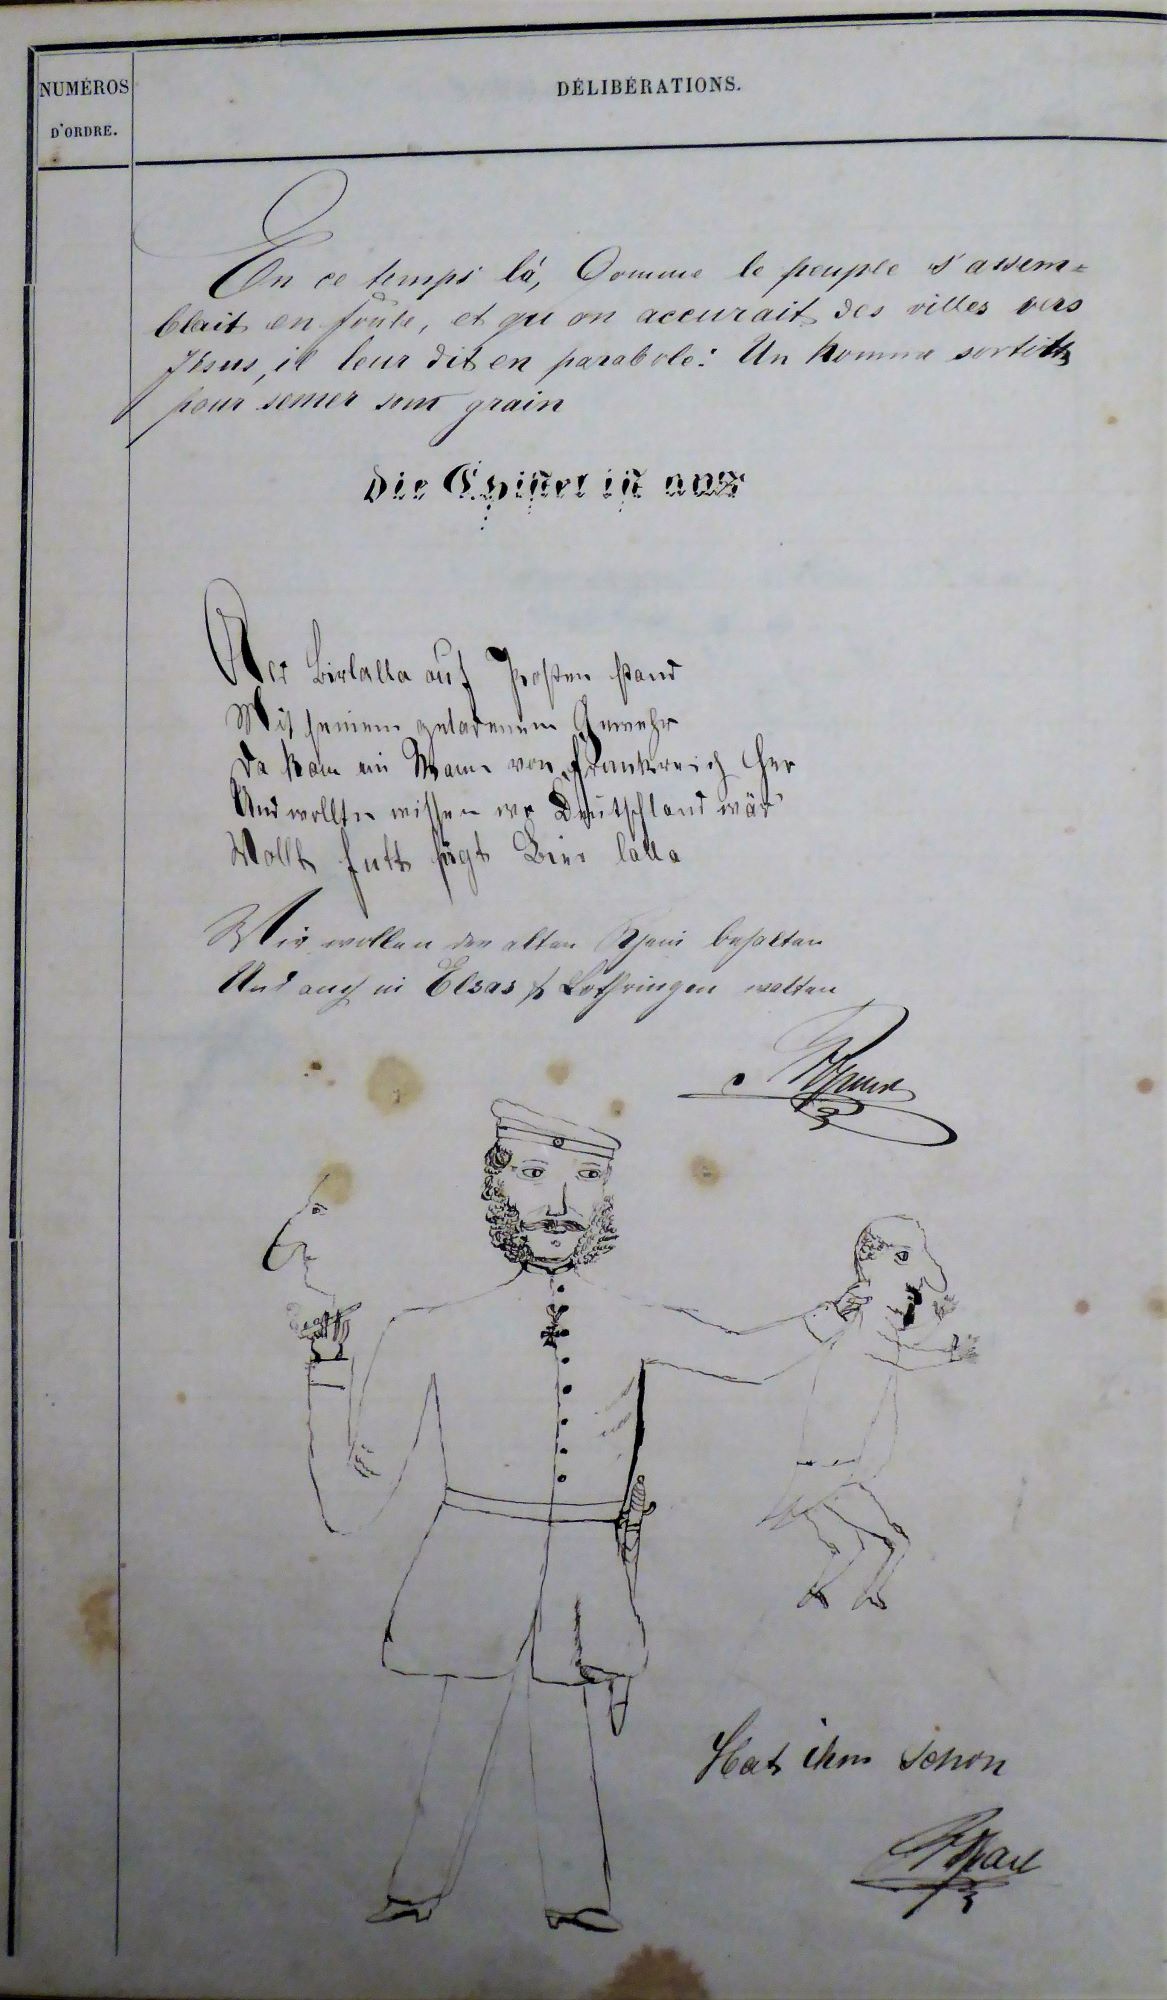 NUMÉROS
D'ORDRE.
DÉLIBÉRATIONS.
En ce temps là, Comme le peuple s'assem=
blait en foule, et qu'on accurait des villes vers
Jésus, il leur dit en parabole: Un homme sortit
pour semer son grain
Die Epistel ist aus
Der Birlalla auf Posten stand
Mit seinem geladenem Gewehr
Da kam ein Mann von Frankreich her
Und wollte wissen wo Deutschland wär
Wollt futt sägt Bier lalla
Wir wollen den alten Rhein behalten
Und auch in Elsas & Lothringen walten
Hat ihm schon